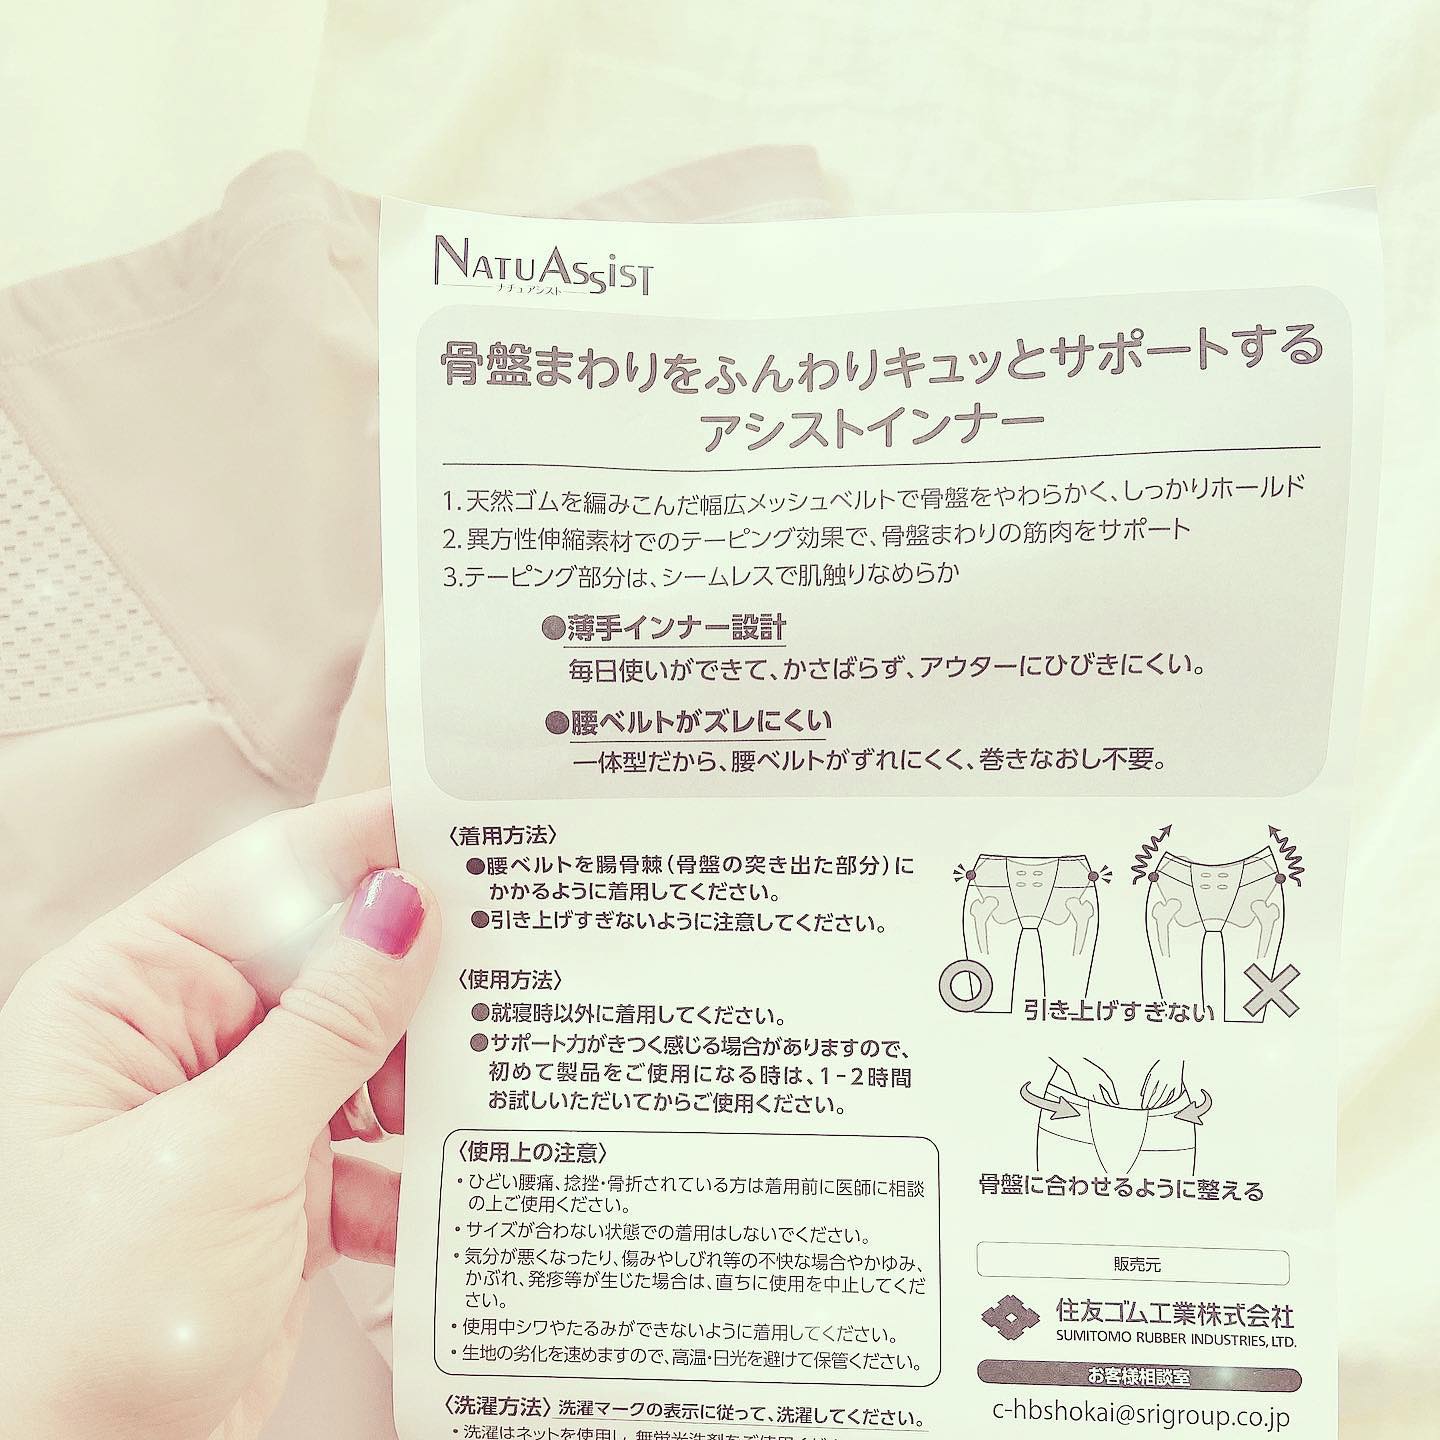 NATUASSIST
ナチュアシスト
骨盤まわりをふんわりキュッとサポートする
アシストインナー
1.天然ゴムを編みこんだ幅広メッシュベルトで骨盤をやわらかく、しっかりホールド
2.異方性伸縮素材でのテーピング効果で、骨盤まわりの筋肉をサポート
3.テーピング部分は、シームレスで肌触りなめらか
●薄手インナー設計
毎日使いができて、かさばらず、アウターにひびきにくい。
●腰ベルトがズレにくい
一体型だから、腰ベルトがずれにくく、巻きなおし不要。
〈着用方法〉
●腰ベルトを腸骨棘(骨盤の突き出た部分)に
かかるように着用してください。
●引き上げすぎないように注意してください。
引き上げすぎない
〈使用方法〉
●就寝時以外に着用してください。
●サポート力がきつく感じる場合がありますので、
初めて製品をご使用になる時は、1-2時間
お試しいただいてからご使用ください。
骨盤に合わせるように整える
〈使用上の注意〉
・ひどい腰痛、捻挫・骨折されている方は着用前に医師に相談
の上ご使用ください。
・サイズが合わない状態での着用はしないでください。
・気分が悪くなったり、傷みやしびれ等の不快な場合やかゆみ、
かぶれ、発疹等が生じた場合は、直ちに使用を中止してくだ
さい。
・使用中シワやたるみができないように着用してください。
・生地の劣化を速めますので、高温・日光を避けて保管ください。
販売元
住友ゴム工業株式会社
SUMITOMO RUBBER INDUSTRIES, LTD.
お客様相談室
c-hbshokai@srigroup.co.jp
〈洗濯方法〉洗濯マークの表示に従って、洗濯してください。
・洗濯はネットを使用し、無蛍光洗剤をご使用ください